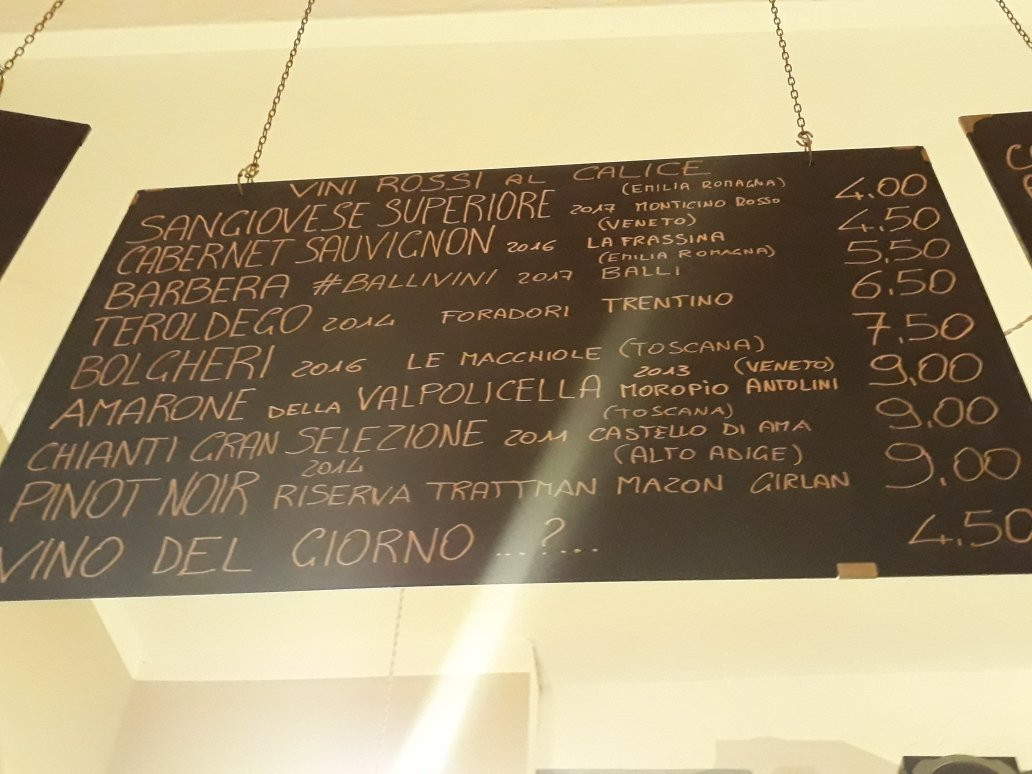 VINI ROSSI AL CALICE
SANGIOVESE SUPERIORE 2017 MONTICINO ROSSO (EMILIA ROMAGNA) 4.00
CABERNET SAUVIGNON 2016 LA FRASSINA (VENETO) 4.50
BARBERA #BALLIVINI 2017 BALLI (EMILIA ROMAGNA) 5,50
TEROLDEGO 2014 FORADORI TRENTINO 6,50
BOLGHERI 2016 LE MACCHIOLE (TOSCANA) 7,50
AMARONE DELLA VALPOLICELLA 2013 MOROPIO ANTOLINI (VENETO) 9,00
CHIANTI GRAN SELEZIONE 2011 CASTELLO DI AMA (TOSCANA) 9,00
PINOT NOIR 2014 RISERVA TRATTMAN MAZON GIRLAN (ALTO ADIGE) 9,00
VINO DEL GIORNO ...?... 4.50